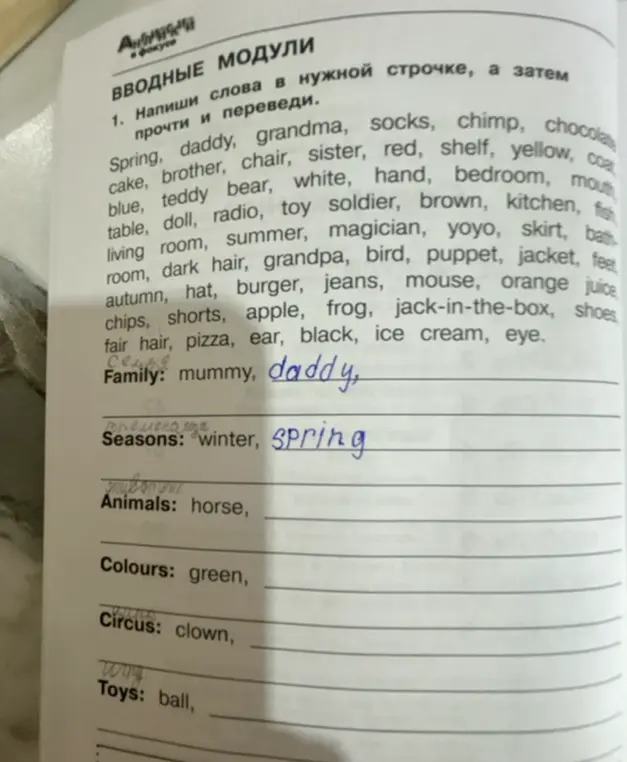 Английский
в фокусе
ВВОДНЫЕ МОДУЛИ
1. Напиши слова в нужной строчке, а затем
прочти и переведи.
Spring, daddy, grandma, socks, chimp, chocolate
cake, brother, chair, sister, red, shelf, yellow, coat,
blue, teddy bear, white, hand, bedroom, mouth,
table, doll, radio, toy soldier, brown, kitchen, fish,
living room, summer, magician, yoyo, skirt, bath-
room, dark hair, grandpa, bird, puppet, jacket, feet,
autumn, hat, burger, jeans, mouse, orange juice,
chips, shorts, apple, frog, jack-in-the-box, shoes,
fair hair, pizza, ear, black, ice cream, eye.
Семья
Family: mummy, daddy,
Seasons: winter, spring
Animals: horse,
Colours: green,
Circus: clown,
Toys: ball,